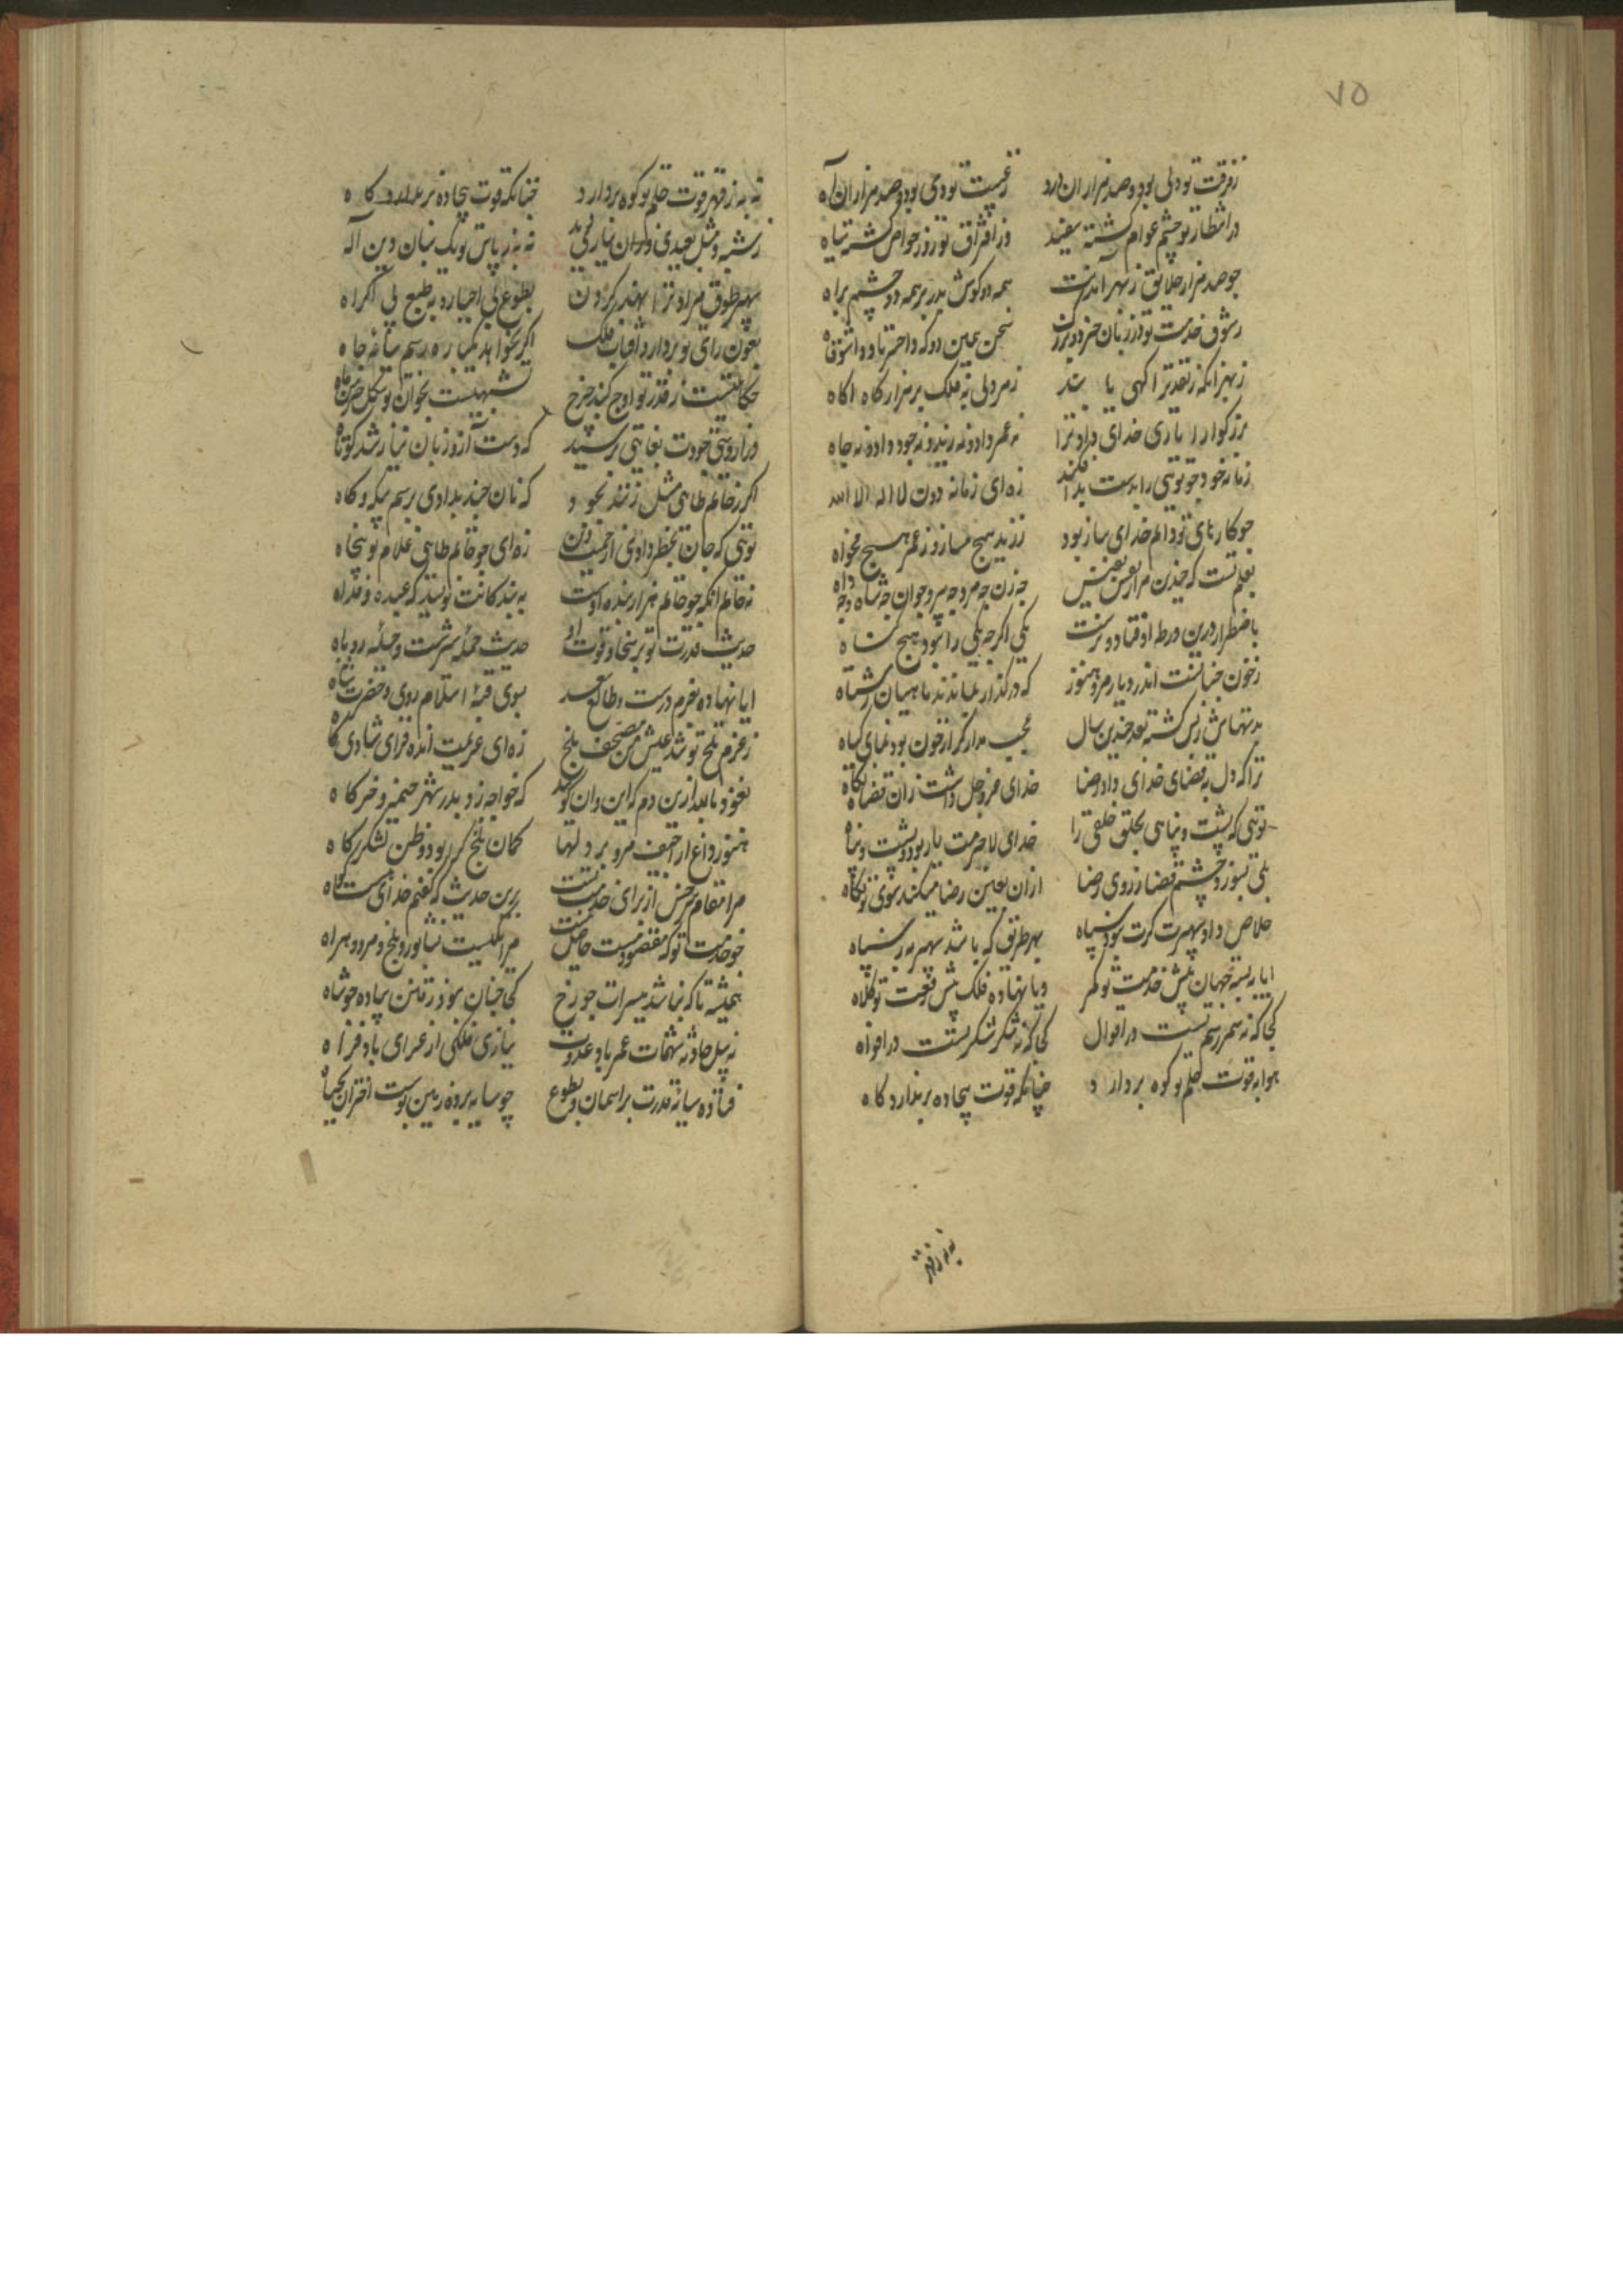 ٧٥
ز فرقت تو دلی بود و صد هزاران درد ز غیبت تو دمی بود و صد هزاران آه
در انتظار تو چشم عوام گشته سفید وز افتراق تو روز خواص گشته سیاه
چو صد هزار خلایق ز بهر آمدنت همه دو گوش بدر بر همه دو چشم براه
ز شوق خدمت تو در زبان خرد و بزرگ سخن همین دو که واحسرتا و واشوقاه
ز بهر آنکه ز نقد ترا آگهی باشد ز مرو لی به فلک بر هزار کاه اکاه
بزرگوارا باری خدای داد ترا نه عمر داد و نه زید و نه جود داد و نه جاه
زمانه خود چو تویی را بدست بد فکند زه ای زمانه دون لا اله الا الله
چو کارهای تو دایم خدای ساز بود ز زید هیچ مساز و ز عمر هیچ مخواه
بعلم تست که چندین هزار نفس نفیس چه زن چه مرد چه پیر و جوان چه شاه و چه داه
باضطرار درین ورطه اوفتاد و برست یکی اگر چه یکی را نبود هیچ گناه
ز خون چنانست اندر دیار مرو هنوز که در گذار بماندند ماهیان ز شناه
بدتهاش زپس کشته بعد چندین سال عجب مدار گر از خون بود نمای گیاه
ترا که دل به قضای خدای داد رضا خدای عز و جل داشت زان قضات نگاه
تویی که پشت و پناهی بحلق خلقی را خدای لاجرمت یار بود و پشت و پناه
بلی بسوز و چشم قضا ز روی رضا از ان بعین رضا میکند سوی تو نگاه
خلاص داد سپهرت کرت نبود سپاه بهر طریق که باشد سپهر به ز سپاه
ایا ببسته جهان پیش خدمت تو کمر و یا نهاده فلک پیش رفعت تو کلاه
کجا که نه سمر رسم تست در اقوال کجا که نه شکر شکر تست در افواه
هوا به قوت حلم تو کوه بردارد چنانکه قوت بیجاده بر ندارد کاه
نه به ز قهر
نه به ز قهر قوت حلم تو کوه بردارد چنانکه قوت بیجاده بر ندارد کاه
ز شبه و مثل بعیدی و زان نیاری دید نه به ز پاس تو یک پاسبان دین آله
سپهر طوق مراد ترا نهند گردن بطوع بی اجبار و به طبع بی اکراه
بعون رای تو بردارد آفتاب فلک اگر بخواهد یکباره رسم سایه جاه
حکایتیست ز قدر تو اوج گنبد چرخ شبهیست بخوان تو شکل خرمن ماه
دراز دستی جودت بغایتی برسید که دست آز و زبان نیاز شد کوتاه
اگر ز حاتم طایی مثل زنند بجود که نان چند بدادی برسم بیگه و گاه
تویی که جان بخطر دادی از حمیت دین زه ای چو حاتم طایی غلام تو پنجاه
نه حاتم آنکه چو حاتم هزار بنده اوست به بندگانت نویسد که عبده و فداه
حدیث قدرت تو بر سخا و قوت او حدیث حمله شیرست و حیله روباه
ایا نهاده بعزم درست و طالع سعد بسوی قبه اسلام روی و حضرت شاه
ز عزم بلخ تو شد عیش من مصحف بلخ زه ای عزیمت انده فزای شادی کاه
نعوذ بالله ازین دم که این و آن گوید که خواجه زد بدر شهر خیمه و خرگاه
هنوز داغ احنف مرو بر دلها گمان بلخ که بود و وطن لشکرگاه
مرا مقام سرخس از برای خدمت تست برین حدیث که گفتم خدای هست گواه
چو خدمت تو که مقصودمست حاصل نیست مرا یکیست نشابور و بلخ و مرو و هراه
همیشه تا که نباشد بسیرات چو رخ کجا چنان بود ز قلتن پیاده چو شاه
نه پیل حادثه شهمات عمر باد عدوت بیازی فلکی از عرای باد فراه
فتاده سایه قدرت بر آسمان و بطوع چو سایه بر وه زمین بوست اختران بجباه